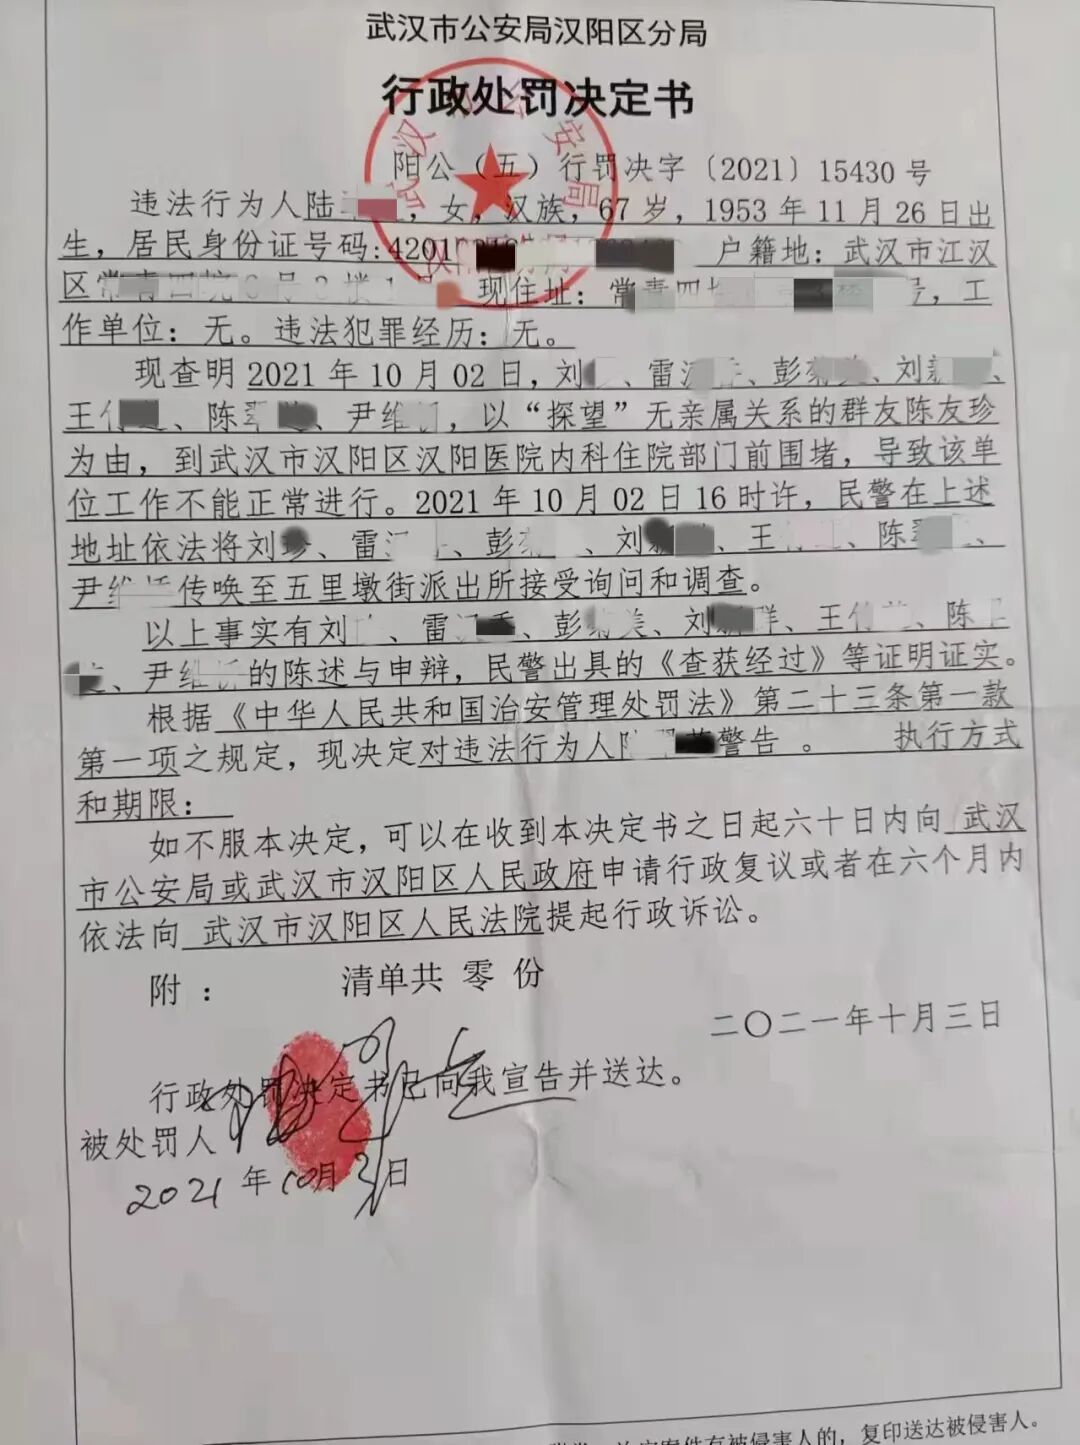 武汉市公安局汉阳区分局
行政处罚决定书
阳公（五）行罚决字〔2021〕15430 号
违法行为人陆，女，汉族，67 岁，1953 年 11 月 26 日出
生，居民身份证号码:4201 户籍地：武汉市江汉
区常青四 现住址：常青四 号，工
作单位：无。违法犯罪经历：无。
现查明 2021 年 10 月 02 日，刘、雷、彭、刘、
王、陈、尹维，以“探望”无亲属关系的群友陈友珍
为由，到武汉市汉阳区汉阳医院内科住院部门前围堵，导致该单
位工作不能正常进行。2021 年 10 月 02 日 16 时许，民警在上述
地址依法将刘、雷、彭、刘、王、陈、
尹维传唤至五里墩街派出所接受询问和调查。
以上事实有刘、雷、彭美、刘群、王、陈
、尹维的陈述与申辩，民警出具的《查获经过》等证明证实。
根据《中华人民共和国治安管理处罚法》第二十三条第一款
第一项之规定，现决定对违法行为人警告 。 执行方式
和期限：
如不服本决定，可以在收到本决定书之日起六十日内向 武汉
市公安局或武汉市汉阳区人民政府申请行政复议或者在六个月内
依法向 武汉市汉阳区人民法院提起行政诉讼。
附 ： 清单共 零 份
二〇二一年十月三日
行政处罚决定书已向我宣告并送达。
被处罚人
2021 年 10 月 3 日
案件有被侵害人的，复印送达被侵害人。